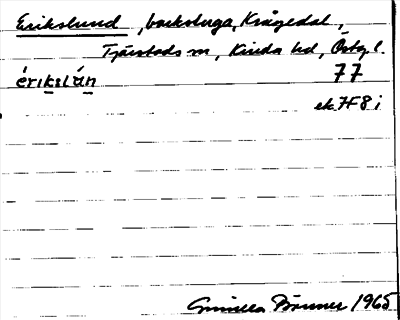 Erikslund, backstuga, Krågedal,
Tjärstads sn, Kinda hd, Östg. l.
érikslán 77
ek. 7F8i
Gunilla Bonner 1965